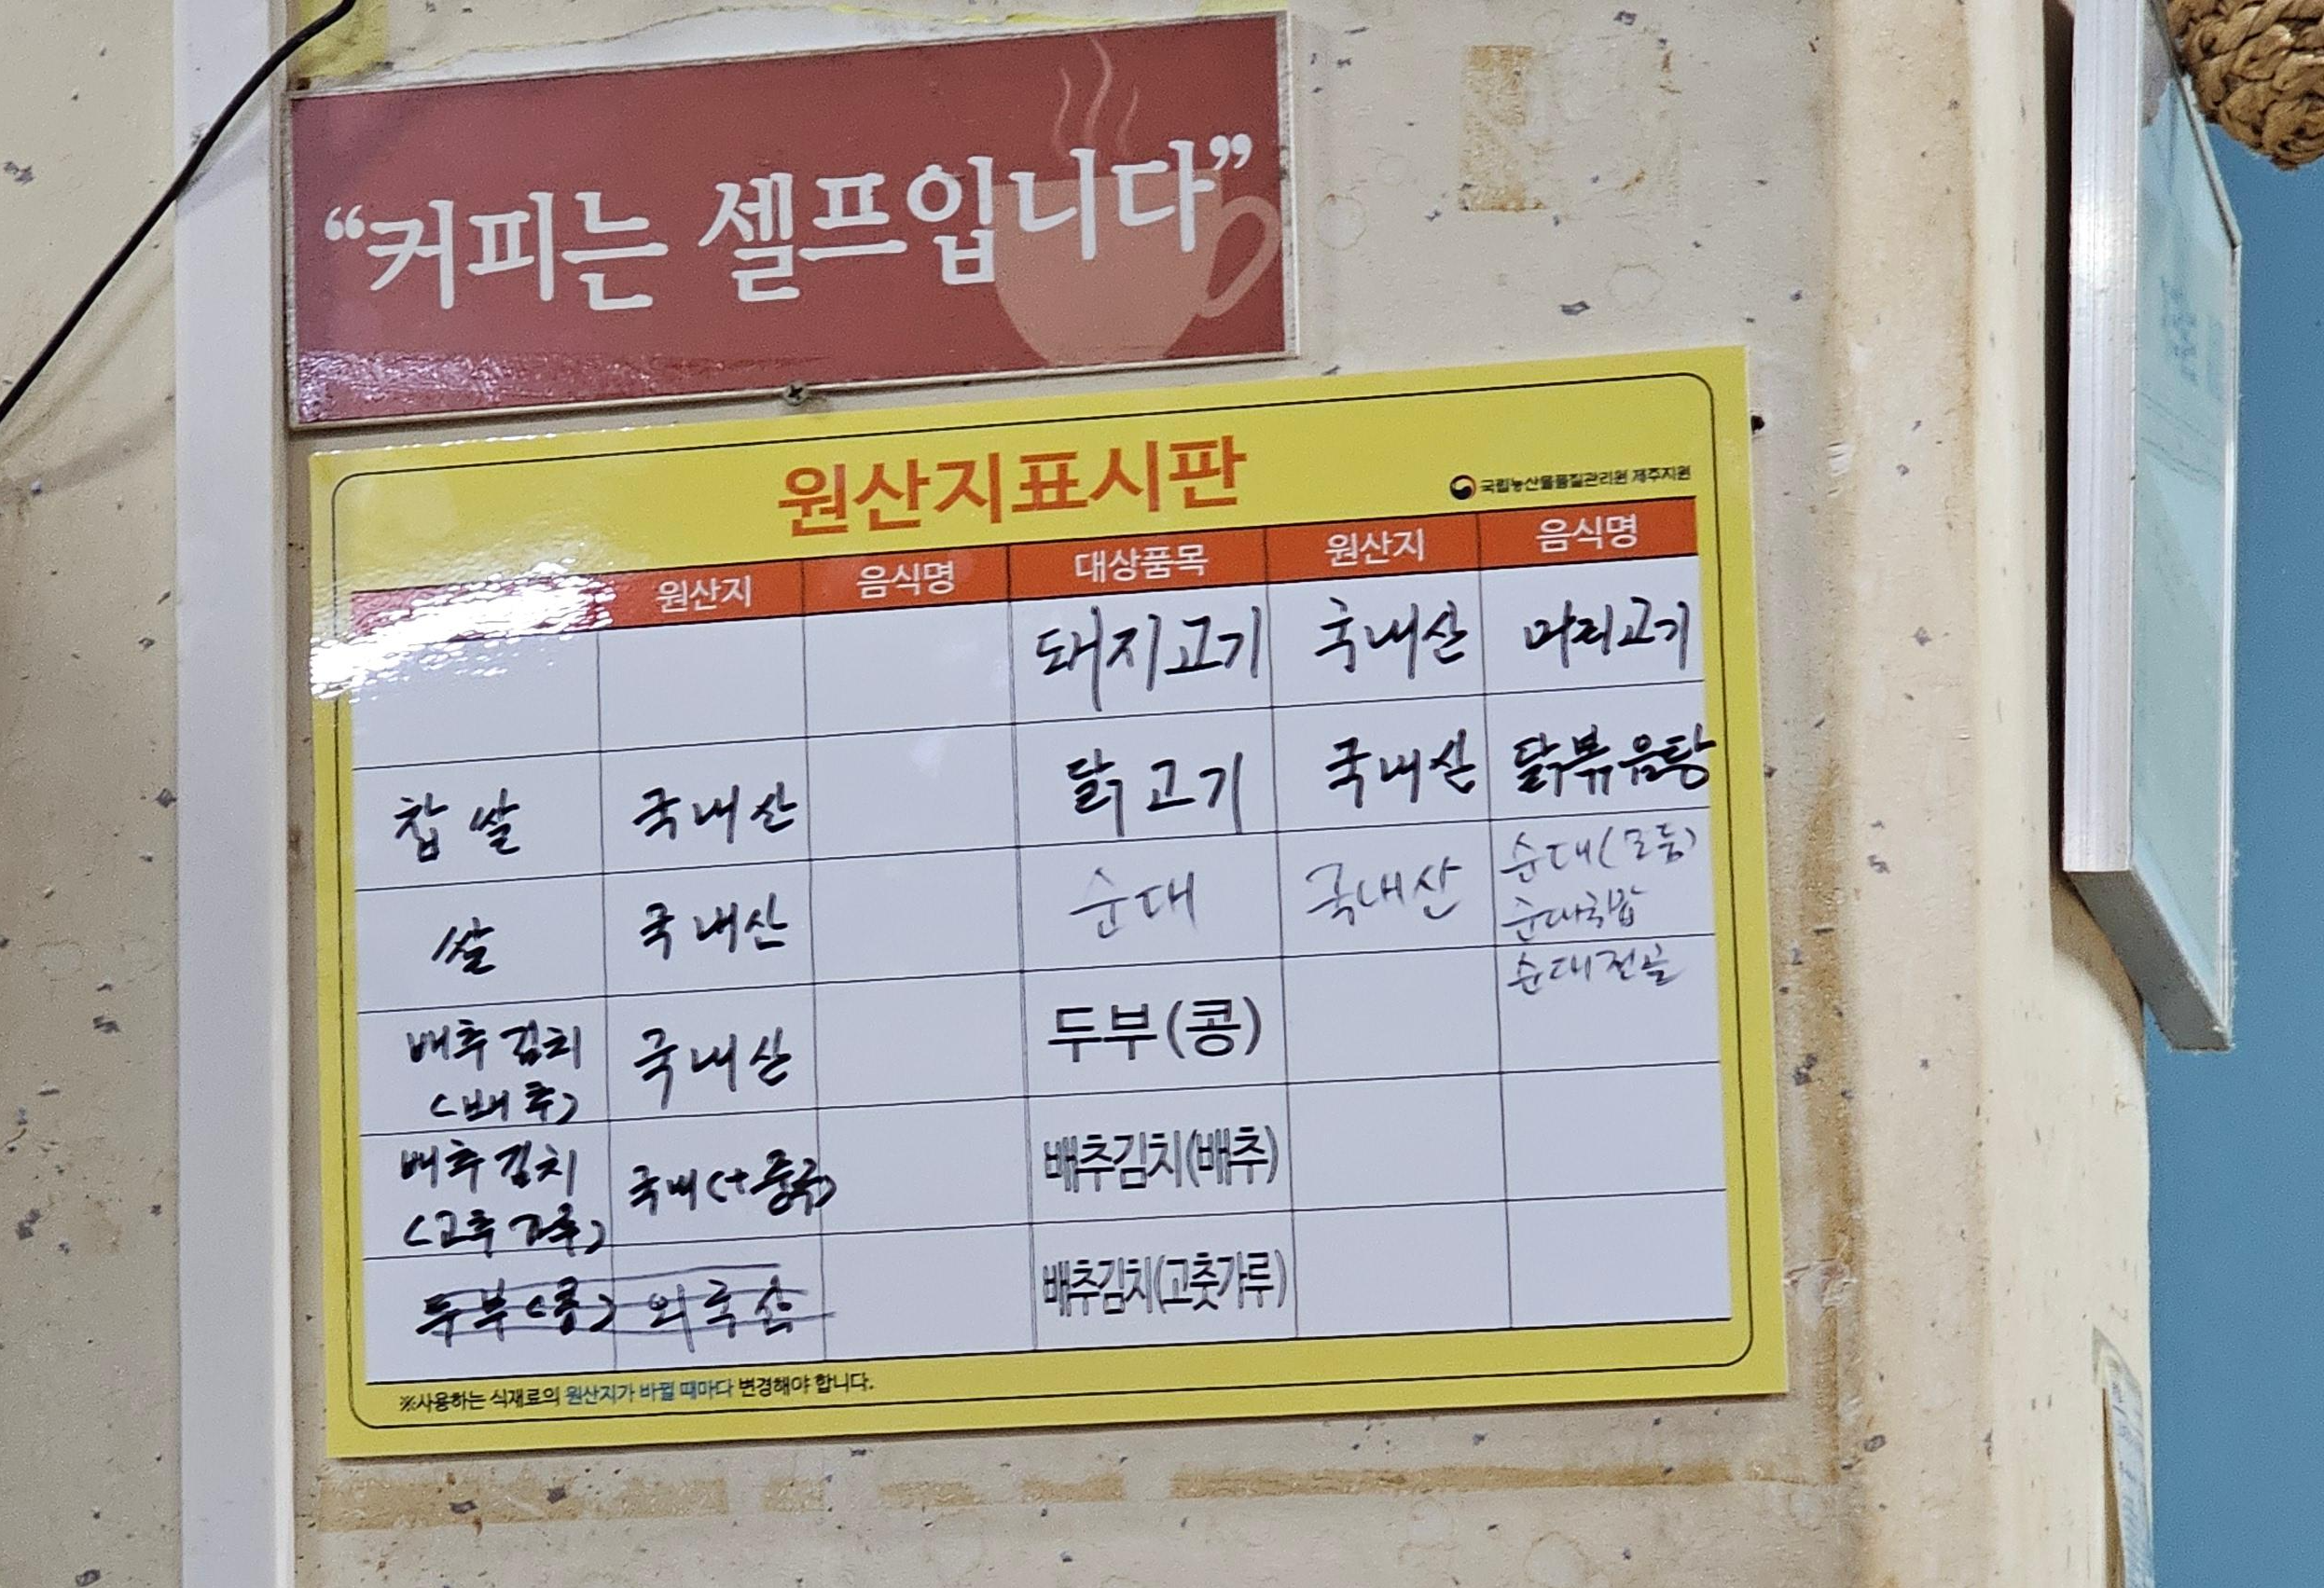 “커피는 셀프입니다”
원산지표시판
국립농산물품질관리원 제주지원
원산지 음식명 대상품목 원산지 음식명
돼지고기 국내산 머리고기
찹쌀 국내산 닭고기 국내산 닭볶음탕
쌀 국내산 순대 국내산 순대(모둠)
순대국밥
순대전골
배추김치 국내산 두부(콩)
(배추)
배추김치 국내(+중국) 배추김치(배추)
두부(콩) 외국산 배추김치(고춧가루)
※사용하는 식재료의 원산지가 바뀔 때마다 변경해야 합니다.